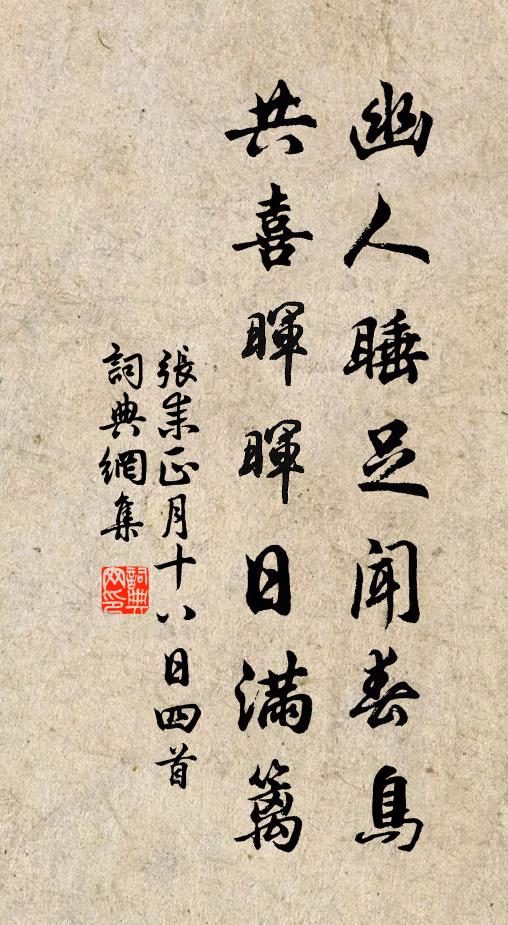 幽人睡足聞春鳥
共喜暉暉日滿籬
張耒正月十八日四首
詞典網集
詞典網印